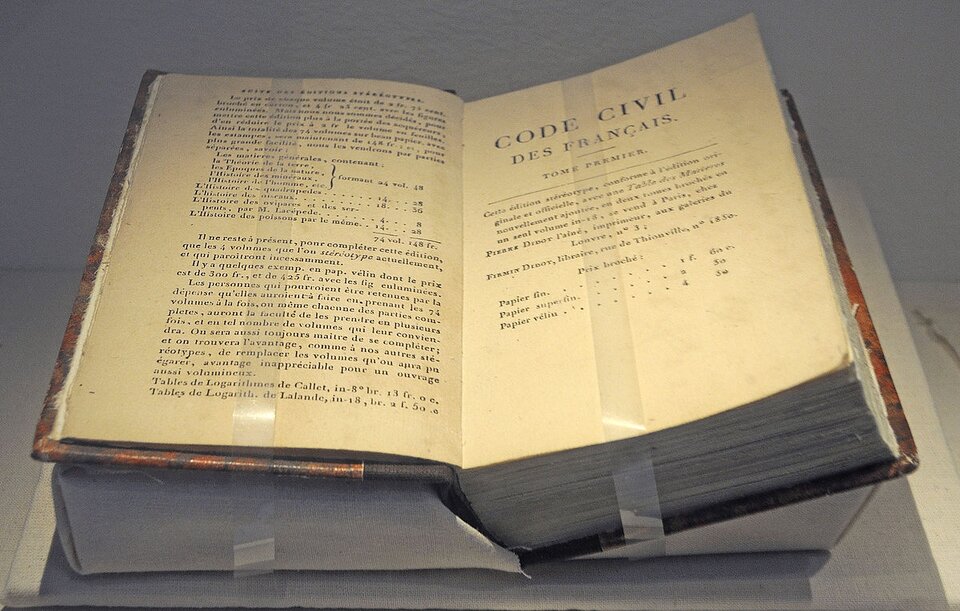 SUITE DES ÉDITIONS STÉRÉOTYPES.
Le prix de chaque volume étoit de 2 fr. 75 cent.
broché en carton, et 4 fr. 25 cent. avec les figures
enluminées. Mais nous nous sommes décidés, pour
mettre cette édition plus à la portée des acquéreurs,
d'en réduire le prix à 2 fr le volume en feuilles.
Ainsi la totalité des 74 volumes sur beau papier, avec
les estampes, sera maintenant de 148 fr.; et, pour
plus grande facilité, nous les vendrons par parties
séparées, savoir:
Les matieres générales, contenant:
la Théorie de la terre,
les Époques de la nature,
l'Histoire des minéraux,
l'Histoire de l'homme, etc.
formant 24 vol. 48
L'Histoire des quadrupedes. 14. 28
L'Histoire des oiseaux. 18. 36
L'Histoire des ovipares et des ser-
pents, par M. Lacépede. 4. 8
L'Histoire des poissons par le même. 14. 28
74 vol. 148 fr.
Il ne reste à présent, pour compléter cette édition,
que les 4 volumes que l'on stéréotype actuellement,
et qui paroîtront incessamment.
Il y a quelques exemp. en pap. vélin dont le prix
est de 300 fr., et de 425 fr. avec les fig enluminées.
Les personnes qui pourroient être retenues par la
dépense qu'elles auroient à faire en prenant les 74
volumes à la fois, ou même chacune des parties com-
pletes, auront la faculté de les prendre en plusieurs
fois, et en tel nombre de volumes qui leur convien-
dra. On sera aussi toujours maître de se compléter;
et on trouvera l'avantage, comme à nos autres sté-
réotypes, de remplacer les volumes qu'on aura pu
égarer, avantage inappréciable pour un ouvrage
aussi volumineux.
Tables de Logarithmes de Callet, in-8° br. 13 fr. 0 c,
Tables de Logarith. de Lalande, in-18, br. 2 f. 50 c
CODE CIVIL
DES FRANÇAIS.
TOME PREMIER.
Cette édition stéréotype, conforme à l'édition ori-
ginale et officielle, avec une Table des Matieres
nouvellement ajoutée, en deux tomes brochés en
un seul volume in-18, se vend à Paris, chez
PIERRE DIDOT l'aîné, imprimeur, aux galeries du
Louvre, n° 3;
FIRMIN DIDOT, libraire, rue de Thionville, n° 1850.
Prix broché:
Papier fin. . . . . . 1 f. 60 c.
Papier superfin. . . . . . 2 50
Papier vélin . . . . . . 4 50